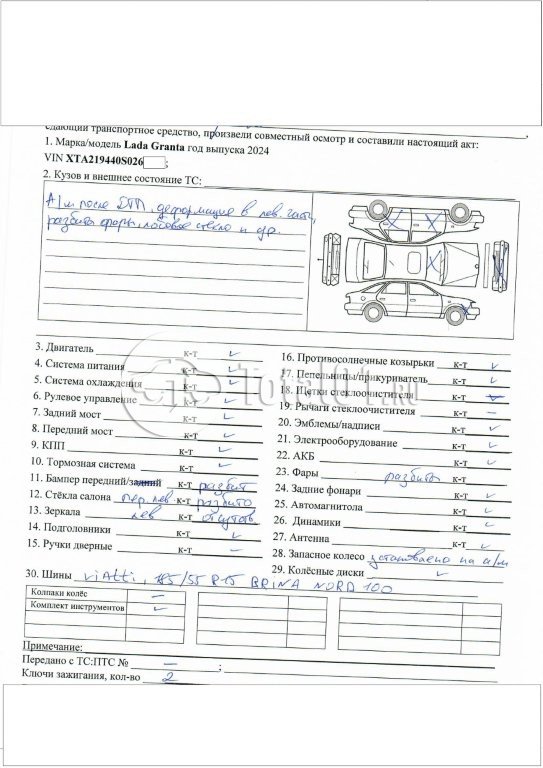 едающий транспортное средство, произвели совместный осмотр и составили настоящий акт:
1. Марка/модель Lada Granta год выпуска 2024
VIN XTA219440S026 ;
2. Кузов и внешнее состояние ТС:
А/м после ДТП, деформация в лев. части,
разбиты фары, лобовое стекло и др.
3. Двигатель к-т ✓
4. Система питания к-т ✓
5. Система охлаждения к-т ✓
6. Рулевое управление к-т ✓
7. Задний мост к-т ✓
8. Передний мост к-т ✓
9. КПП к-т ✓
10. Тормозная система к-т ✓
11. Бампер передний/задний к-т разбит
12. Стёкла салона пер. лев. к-т разбито
13. Зеркала лев к-т отсутств.
14. Подголовники к-т ✓
15. Ручки дверные к-т –
16. Противосолнечные козырьки к-т ✓
17. Пепельницы/прикуриватель к-т ✓
18. Щетки стеклоочистителя к-т ✓
19. Рычаги стеклоочистителя к-т –
20. Эмблемы/надписи к-т ✓
21. Электрооборудование к-т ✓
22. АКБ к-т ✓
23. Фары разбиты к-т
24. Задние фонари к-т ✓
25. Автомагнитола к-т ✓
26. Динамики к-т ✓
27. Антенна к-т ✓
28. Запасное колесо установлено на а/м
29. Колёсные диски ✓
30. Шины Viatti, 185/55 R15 BRINA NORD 100
Колпаки колёс –
Комплект инструментов –
Примечание:
Передано с ТС:ПТС № – ;
Ключи зажигания, кол-во 2
Total01.ru